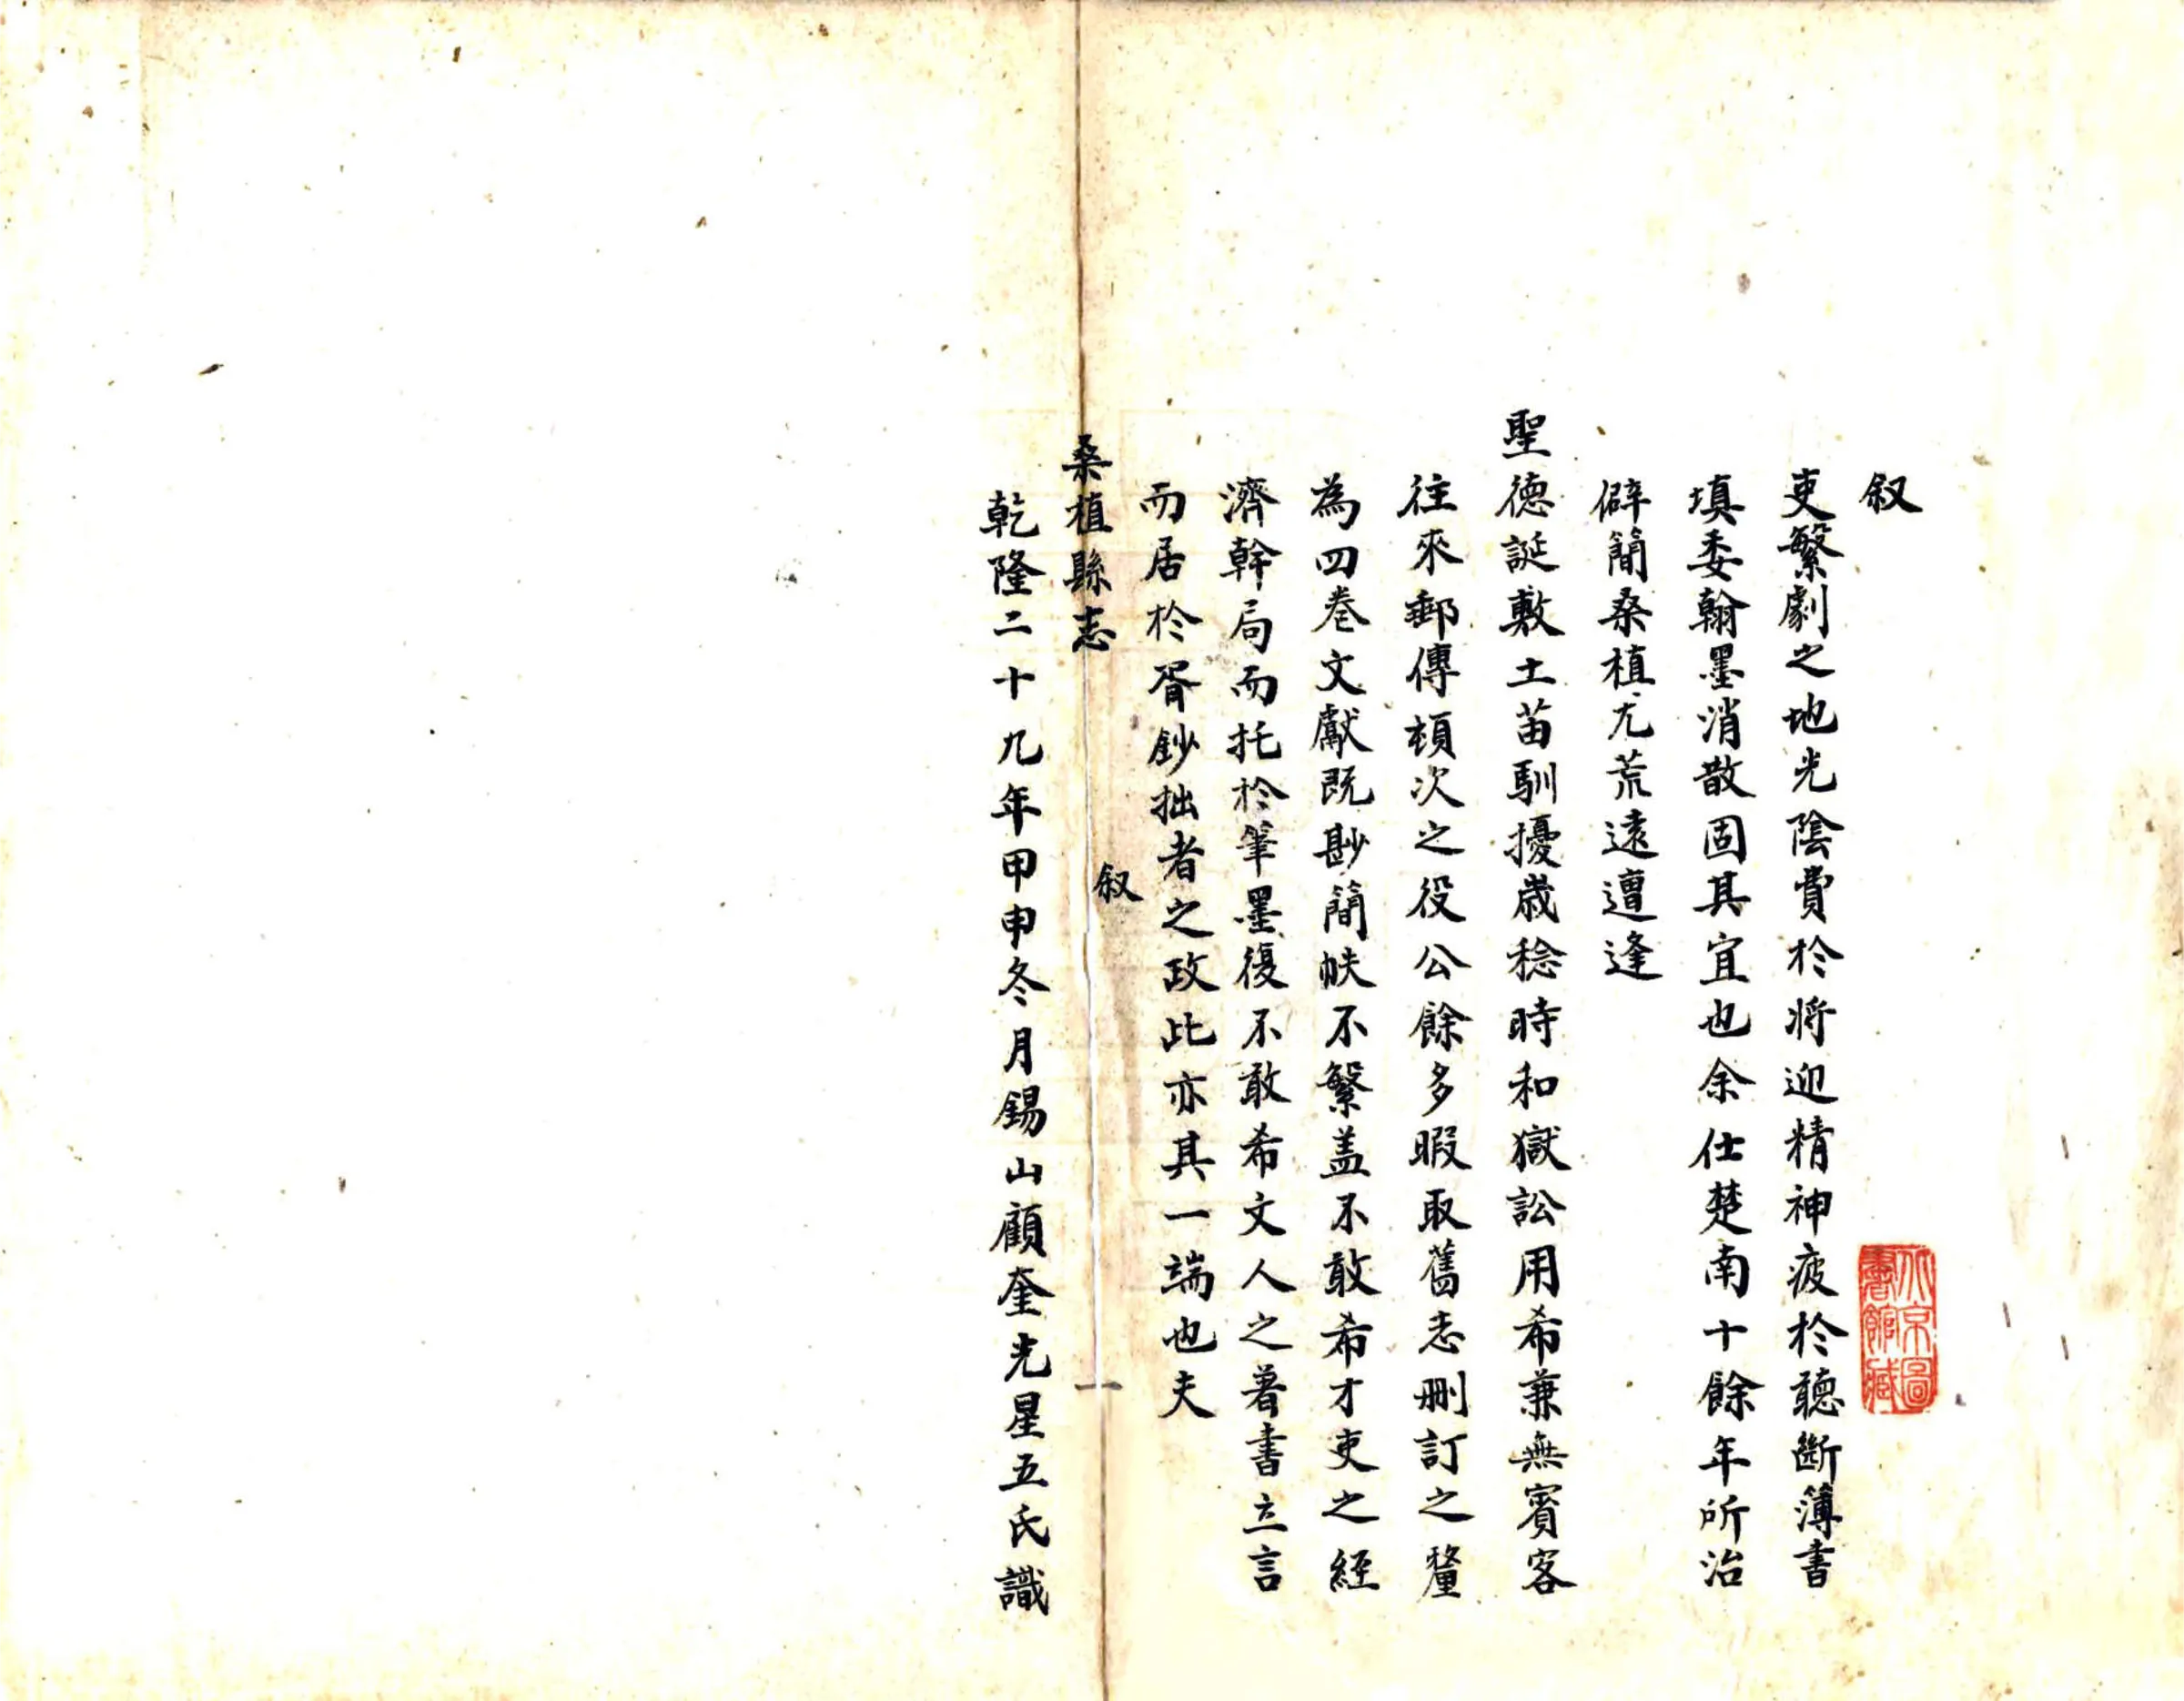 叙
吏繁劇之地光陰費於將迎精神疲於聽斷簿書
填委翰墨消散固其宜也余仕楚南十餘年所治
僻簡桑植尢荒遠遭逢
聖德誕敷土苗馴擾歲稔時和獄訟用希兼無賓客
往來郵傳頓次之役公餘多暇取舊志刪訂之釐
為四卷文獻既尠簡帙不繁盖不敢希才吏之經
濟幹局而托於筆墨復不敢希文人之著書立言
而居於胥鈔拙者之政此亦其一端也夫
桑植縣志
叙
一
乾隆二十九年甲申冬月錫山顧奎光星五氏識
北京圖
書館藏